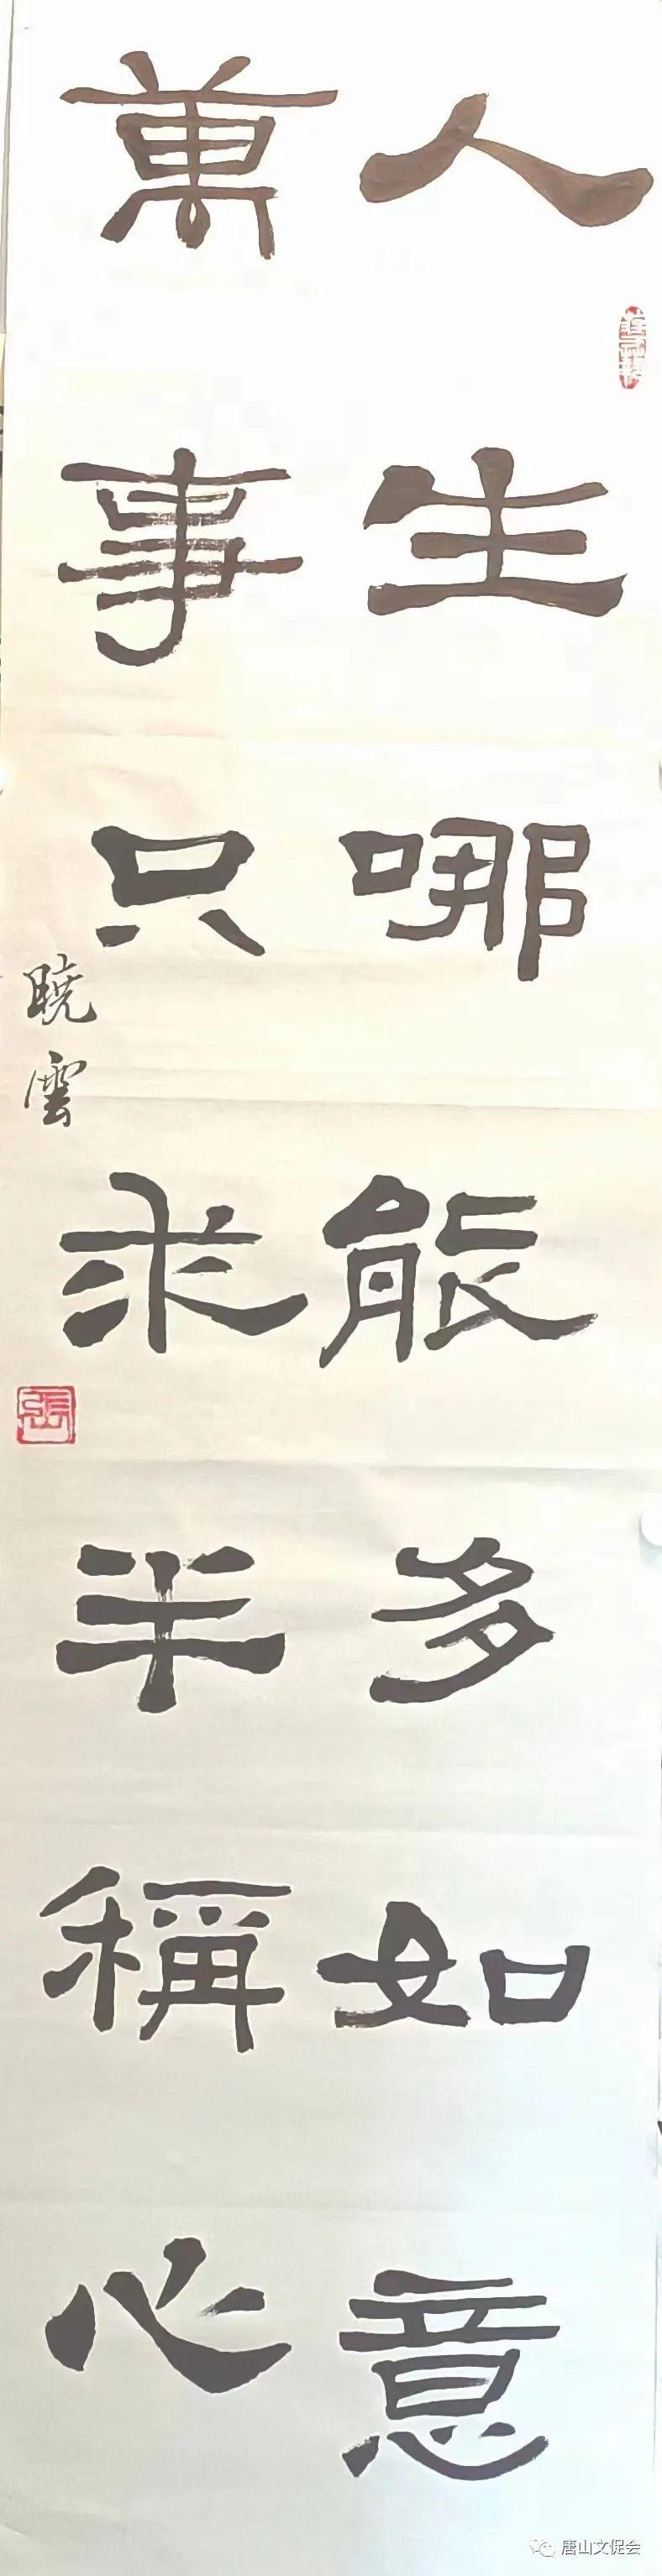 人生哪能多如意
萬事只求半稱心
曉雲
張
唐山文促会